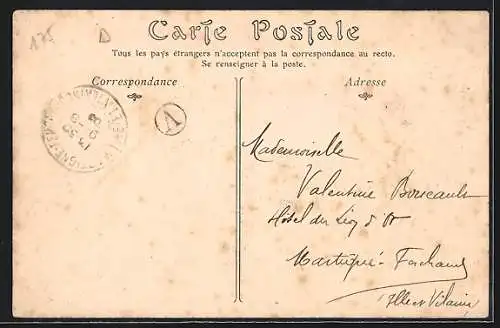 175
D
Carte Postale
Tous les pays étrangers n'acceptent pas la correspondance au recto.
Se renseigner à la poste.
Correspondance
Adresse
A
Mademoiselle
Valentine
Hôtel du Lion d'Or
Martigné-Ferchaud
Ille et Vilaine